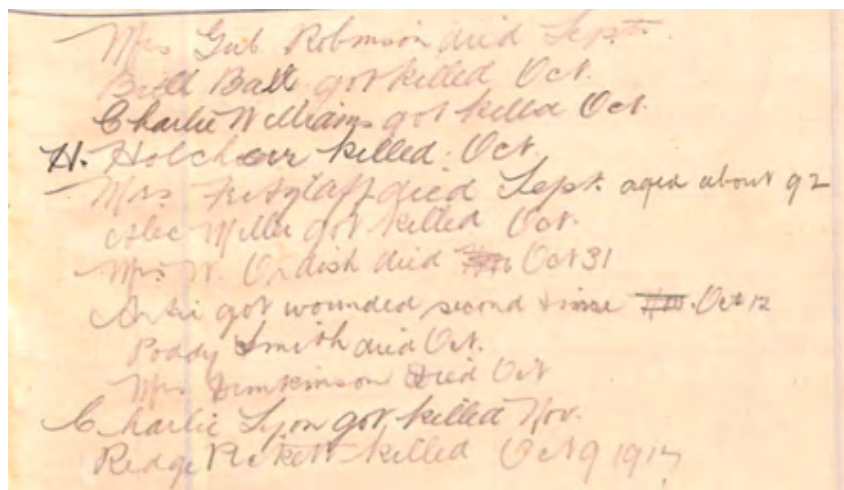 Mrs Gub Robinson died Sept.
Bill Ball got killed Oct.
Charlie Williams got killed Oct.
H. Holch killed. Oct.
Mrs died Sept. aged about 92
Alec Miller got killed Oct.
Mrs W. Ordish died Oct 31
got wounded second time Oct 12
Poddy Smith died Oct.
Mrs died Oct
Charlie Lyon got killed Nov.
Redge Pickett killed Oct 9 1917